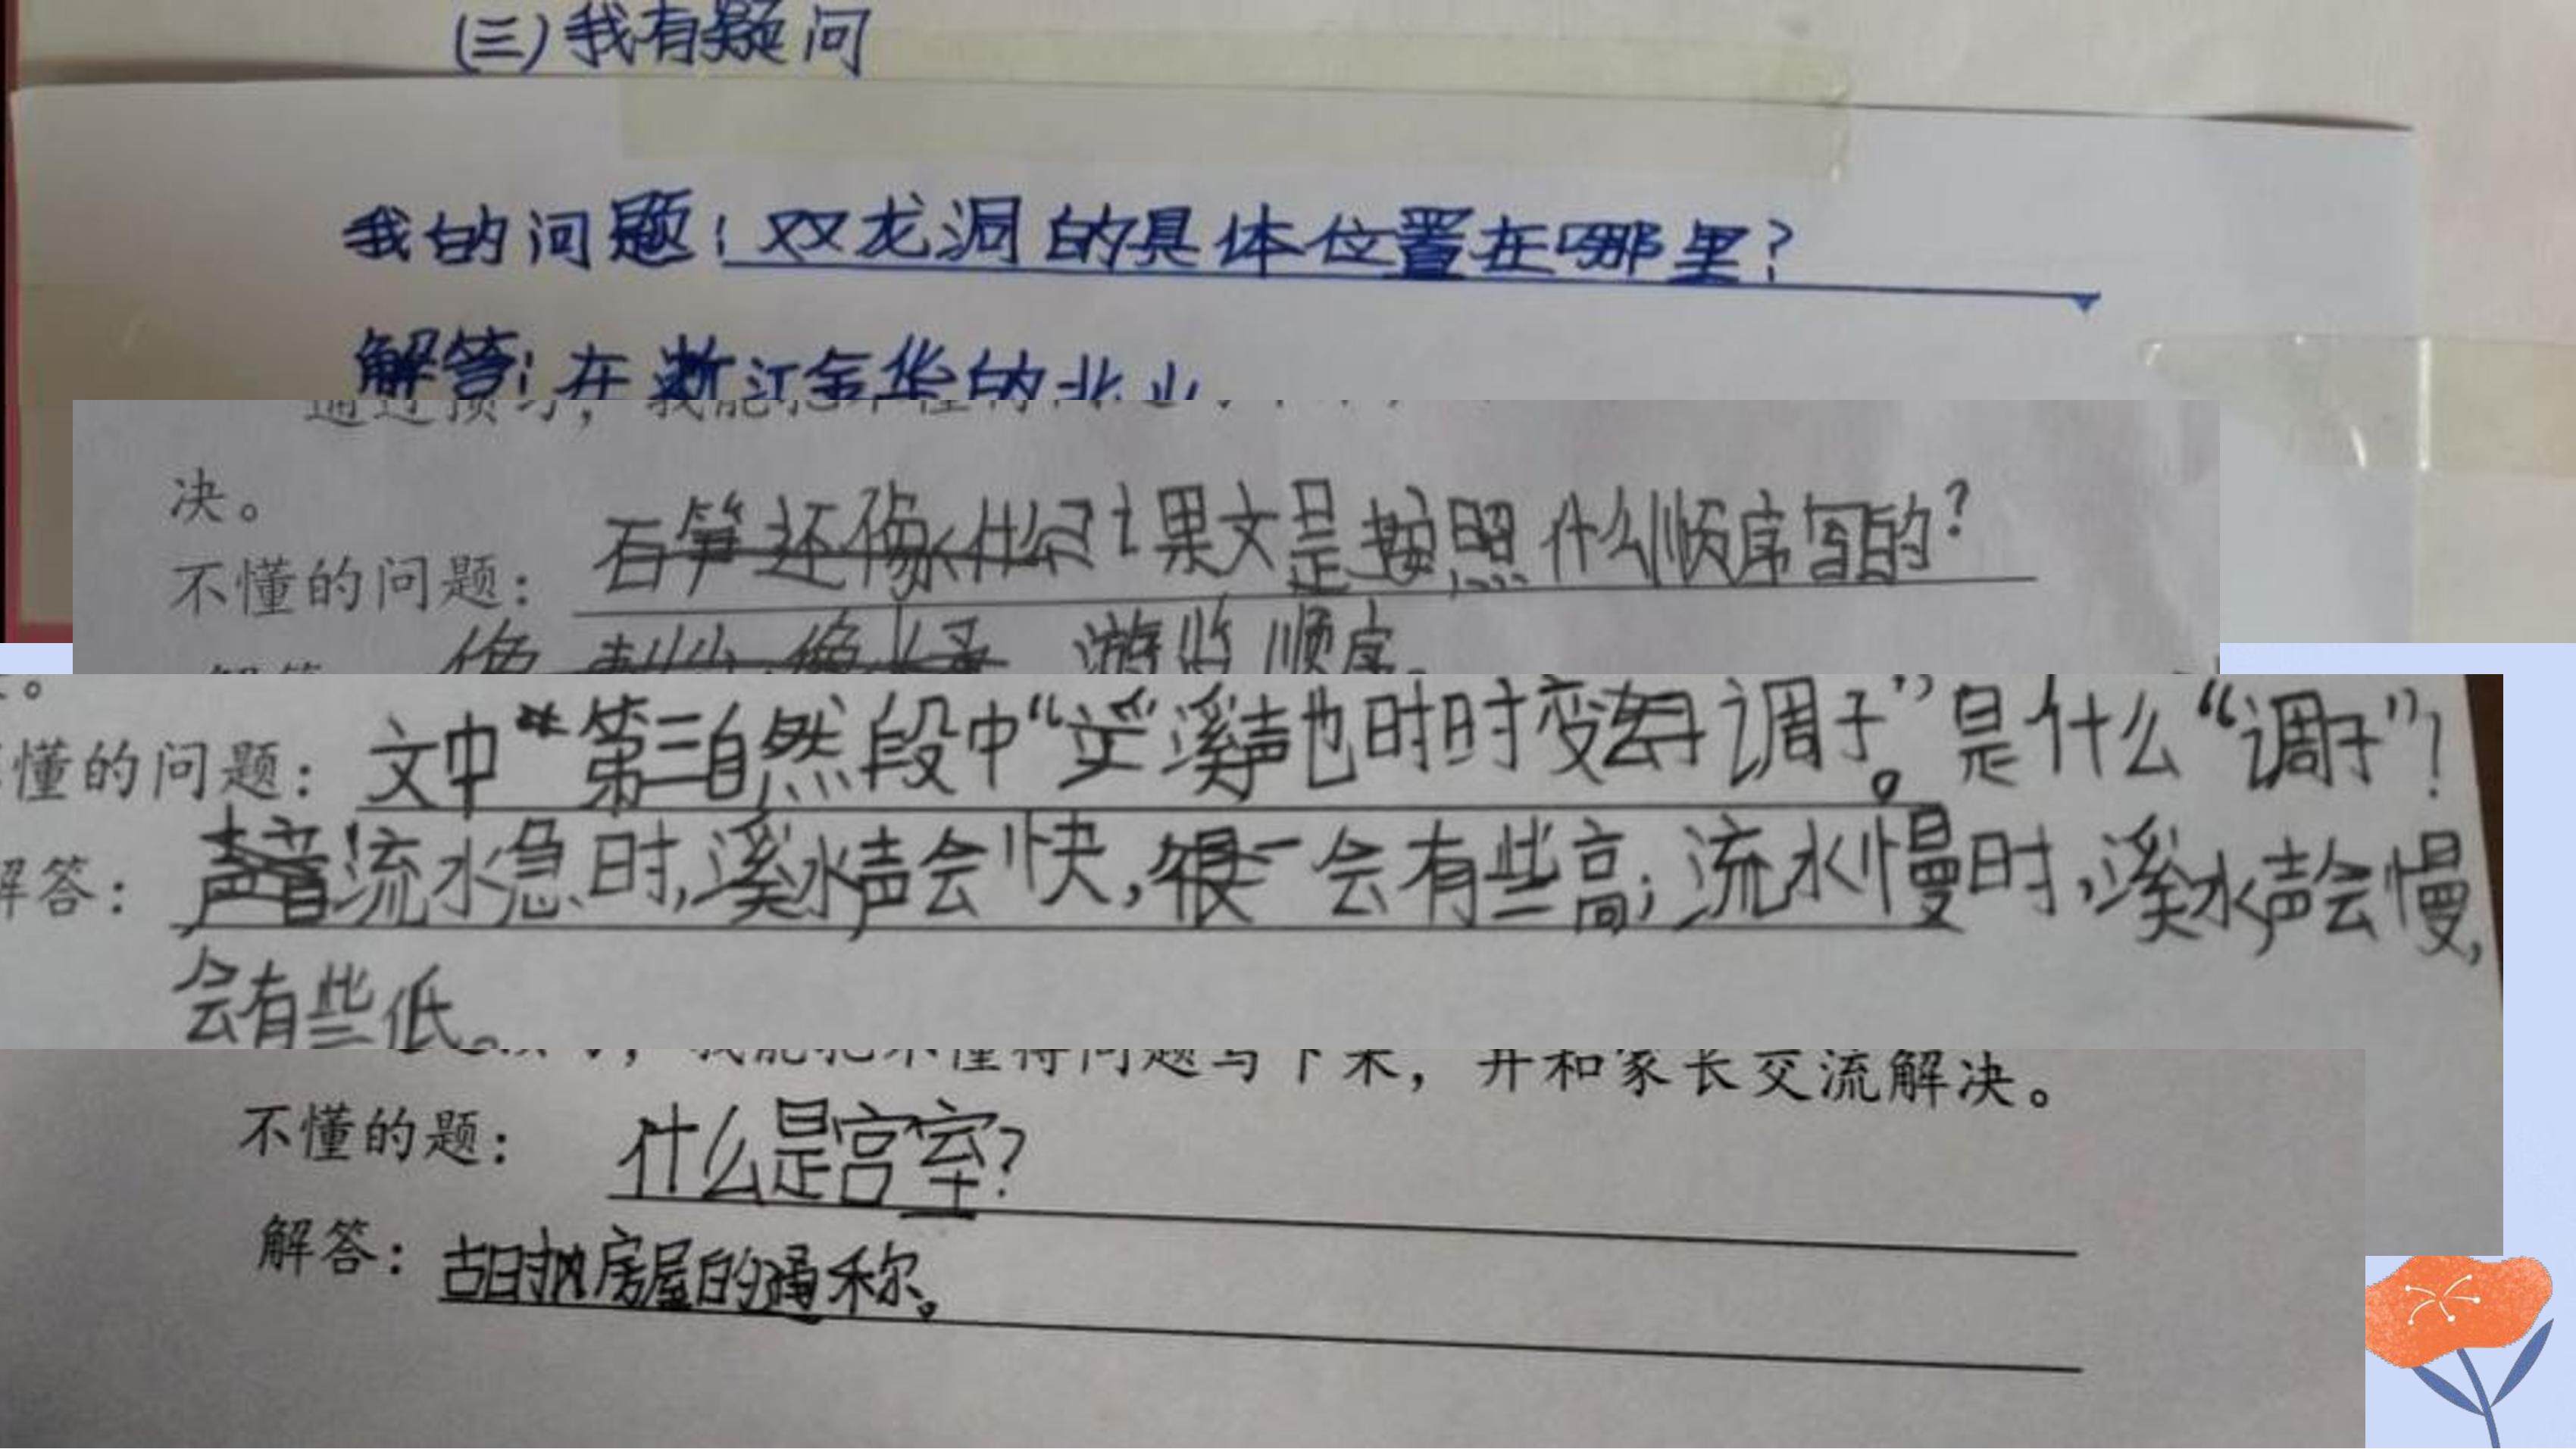 (三)我有疑问
我的问题:双龙洞的具体位置在哪里?
解答:在浙江金华的北山
通过预习,我能把不懂的问题
决。
不懂的问题: 石笋还像什么 课文是按照什么顺序写的?
解答 像 像 游览顺序。
懂的问题: 文中 第三自然段中“溪声也时时变换调子。”是什么“调子”?
解答: 声音 流水急时,溪水声会快,很一会有些高;流水慢时,溪水声会慢,
会有些低。
预习,我能把不懂得问题写下来,并和家长交流解决。
不懂的题: 什么是宫室?
解答: 古时候房屋的通称。